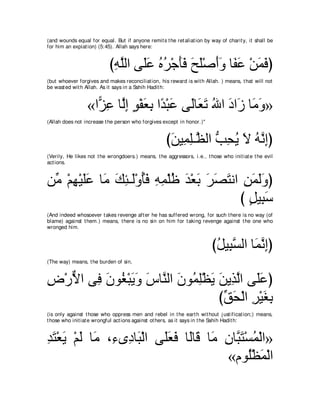 (and wounds equal for equal. But if anyone remits the retaliation by way of charity, it shall be
him for an expiation) (5:45). Allah says here:
(فَمَنْ عَفَا وَأَصْلَحَ فَأَجْرُهُ عَلَى اللَّهِ)
(but whoever forgives and makes reconciliation, his reward is with Allah. ) means, that will not
be wasted with Allah. As it says in a Sahih Hadith:
«وَمَا زَادَ اللهُ تَعَالَى عَبْدًا بِعَفْوٍ إِلَّا عِزًّا»
(Allah does not increase the person who forgives except in honor.)"
(إِنَّهُ لاَ يُحِبُّ الظَّـلِمِينَ)
(Verily, He likes not the wrongdoers.) means, the aggressors, i.e., those who initiate the evil
actions.
(وَلَمَنِ انتَصَرَ بَعْدَ ظُلْمِهِ فَأُوْلَـئِكَ مَا عَلَيْهِمْ مِّن
سَبِيلٍ )
(And indeed whosoever takes revenge after he has suffered wrong, for such there is no way (of
blame) against them.) means, there is no sin on him for taking revenge against the one who
wronged him.
(إِنَّمَا السَّبِيلُ)
(The way) means, the burden of sin,
(عَلَى الَّذِينَ يَظْلِمُونَ النَّاسَ وَيَبْغُونَ فِى الاٌّرْضِ
بِغَيْرِ الْحَقِّ)
(is only against those who oppress men and rebel in the earth without justification;) means,
those who initiate wrongful actions against others, as it says in the Sahih Hadith:
«الْمُسْتَبَّانِ مَا قَالَا فَعَلَى الْبَادِىءِ، مَا لَمْ يَعْتَدِ
الْمَظْلُوم»